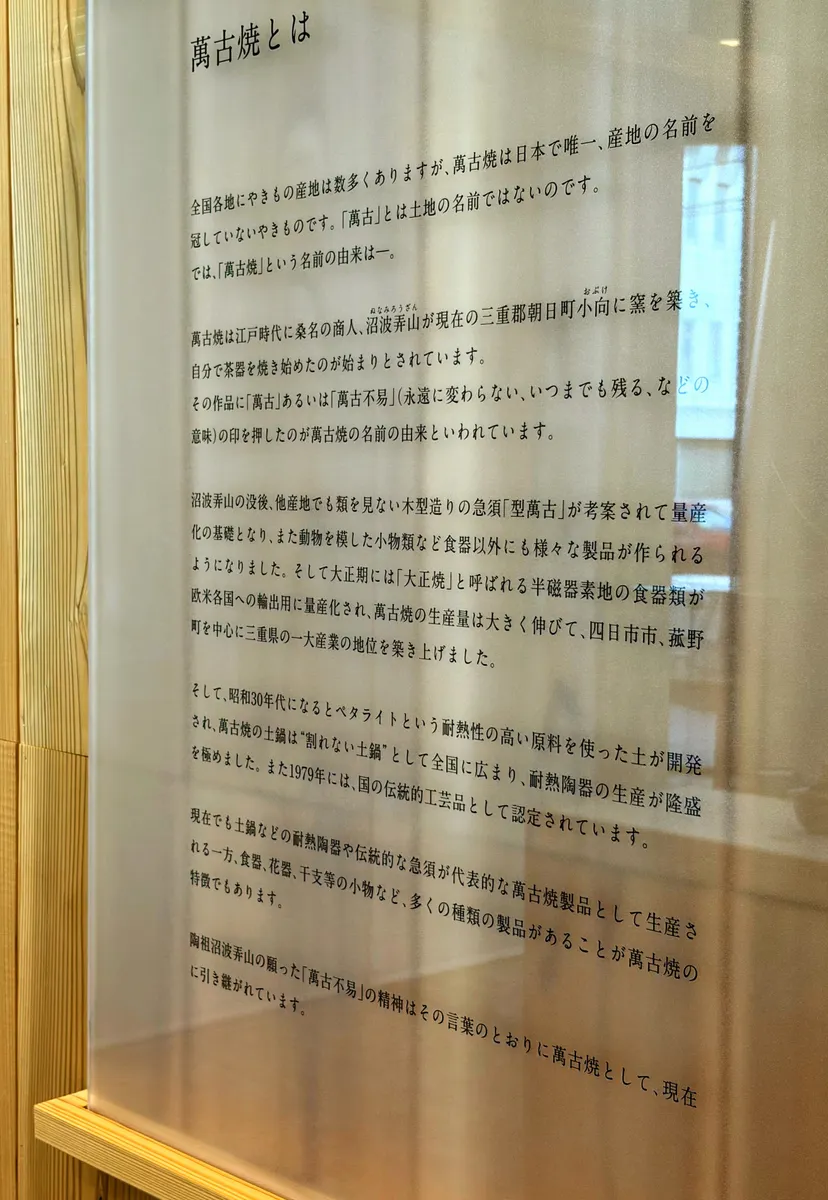 萬古焼とは
全国各地にやきもの産地は数多くありますが、萬古焼は日本で唯一、産地の名前を
冠していないやきものです。「萬古」とは土地の名前ではないのです。
では、「萬古焼」という名前の由来は―。
ぬなみろうざん
おぶけ
萬古焼は江戸時代に桑名の商人、沼波弄山が現在の三重郡朝日町小向に窯を築き、
自分で茶器を焼き始めたのが始まりとされています。
その作品に「萬古」あるいは「萬古不易」(永遠に変わらない、いつまでも残る、などの
意味)の印を押したのが萬古焼の名前の由来といわれています。
沼波弄山の没後、他産地でも類を見ない木型造りの急須「型萬古」が考案されて量産
化の基礎となり、また動物を模した小物類など食器以外にも様々な製品が作られる
ようになりました。そして大正期には「大正焼」と呼ばれる半磁器素地の食器類が
欧米各国への輸出用に量産化され、萬古焼の生産量は大きく伸びて、四日市市、菰野
町を中心に三重県の一大産業の地位を築き上げました。
そして、昭和30年代になるとペタライトという耐熱性の高い原料を使った土が開発
され、萬古焼の土鍋は“割れない土鍋”として全国に広まり、耐熱陶器の生産が隆盛
を極めました。また1979年には、国の伝統的工芸品として認定されています。
現在でも土鍋などの耐熱陶器や伝統的な急須が代表的な萬古焼製品として生産さ
れる一方、食器、花器、干支等の小物など、多くの種類の製品があることが萬古焼の
特徴でもあります。
陶祖沼波弄山の願った「萬古不易」の精神はその言葉のとおりに萬古焼として、現在
に引き継がれています。